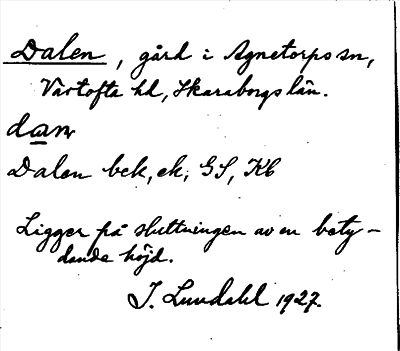 Dalen, gård i Agnetorps sn,
Vartofta hd, Skaraborgs län.
dan
Dalen bek, ek, GS, Kb
Ligger på sluttningen av en bety-
dande höjd.
I. Lundahl 1927.